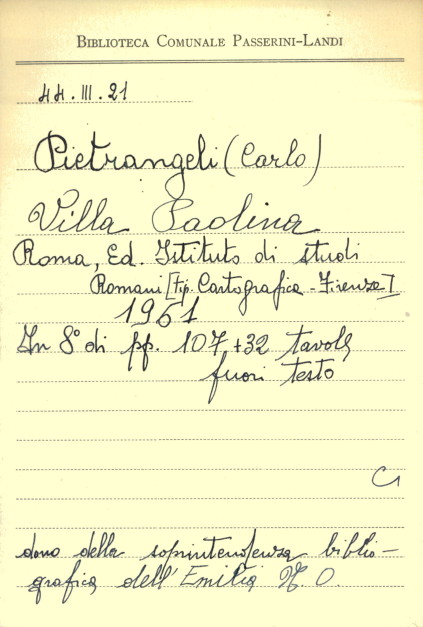 BIBLIOTECA COMUNALE PASSERINI-LANDI
44.III.21
Pietrangeli (Carlo)
Villa Paolina
Roma, Ed. Istituto di studi
Romani [Tip. Cartografica - Firenze]
1961
In 8° di pp. 107 + 32 tavole
fuori testo
C1
dono della soprintendenza biblio-
grafica dell'Emilia N.O.